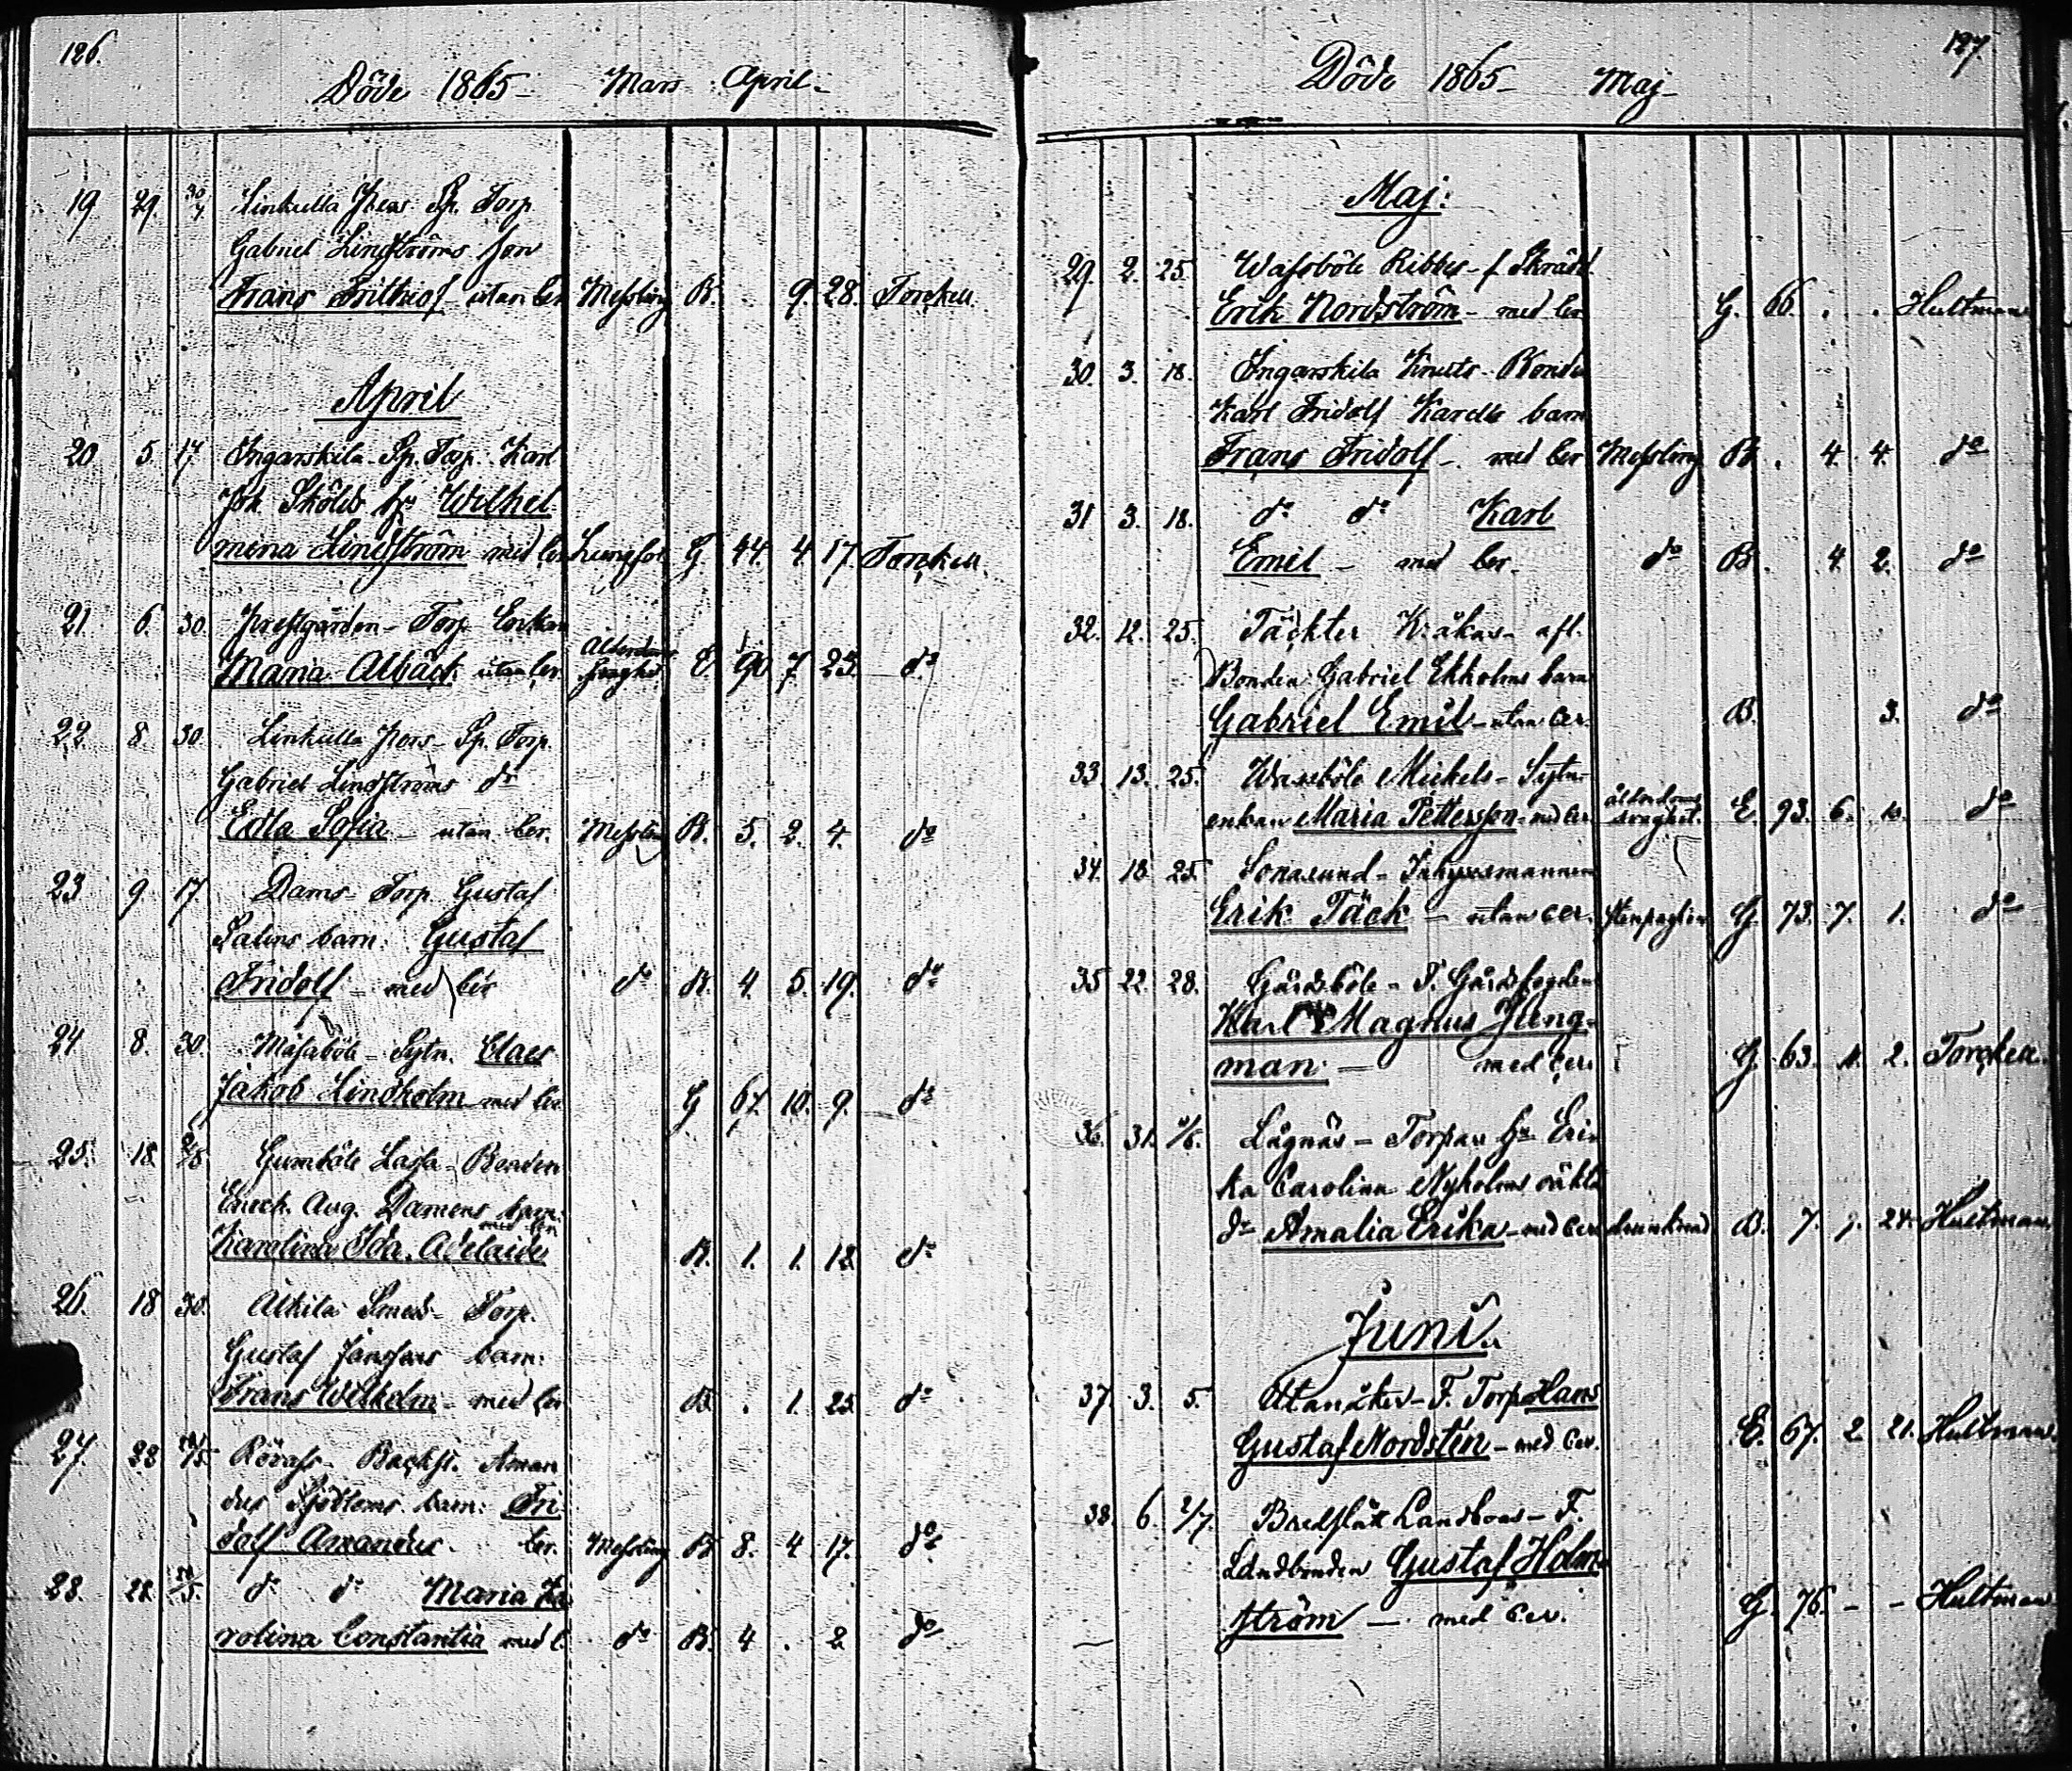 126.
Döde 1865 - Mars April -
19 29. 30/4 Linkulla Pers Sp. Torp
Gabriel Lindströms son
Frans Frithiof - utan cer Messling B. . 9. 28. Torckell.
April
20 5. 17 Ingarskila - Sp. Torp. Karl
Joh Skölds hu Wilhel
mina Lindström med cer Lungsot G. 44. 4. 17. Torckell.
21. 6. 30. Prestgården - Torp Enkan
Maria Albäck utan cer. Ålderdoms svaghet E. 90 7. 23. do
22. 8 30. Linkulla Pers - Sp. Torp.
Gabriel Lindströms dr
Edla Sofia - utan cer. Messling B. 5. 2. 4. do
23 9. 17. Dams - Torp. Gustaf
Salins barn. Gustaf
Fridolf - med cer do B. 4. 5. 19. do
24 8. 30. Måsaböle - Sytn. Claes
Jakob Lindholm med cer G 67. 10. 9. do
25. 18. Gumböle Lassa - Bonden
Enoch. Aug. Damens barn.
med cer.
Karolina Ida. Adelaide B. 1. 1. 18. do
26. 18 30. Alkila Smeds - Torp.
Gustaf Janssons barn:
Frans Wilhelm - med cer B. . 1. 25. do
27. 22 Rövass - Backst. Aman
dus Sjöbloms barn: Fri
dolf Amandus. cer. Messling B 8. 4 17. do
28. 28. do do Maria Ka
rolina Constantia med c. do B. 4 . 2 do
127.
Döde 1865 - Maj -
Maj:
29. 2. 25. Wassböle Ribbes - f Skrädd.
Erik Nordström - med cer G. 66. . . Hultman
30. 3. 18. Ingarskila Knuts - Bonde
Karl Fridolf Karells barn
Frans Fridolf - med cer Messling B . 4. 4. do
31 3. 18. do do Karl
Emil - med cer. do B. . 4. 2. do
32. 12. 25. Täckter Kråkas - afl.
Bonden Gabriel Ekholms barn
Gabriel Emil - utan cer. B. 3. do
33. 13. 25. Wassböle Mickels - Sytn-
enkan Maria Pettersson - med cer ålderdoms svaghet. E. 93. 6. 10. do
34. 18. 25. Sonasund - Inhysesmannen
Erik Täck - utan cer. G. 73. 7. 1. do
35 22. 28. Gårdsböle - F. Gårdsfogden
Karl Magnus Jung-
man - med cer. G. 63. 11. 2. Torckell.
36. 31. 4/6. Lågnäs - Torpar hu Eri-
ka Carolina Nyholms oäkta
dr Amalia Erika - med cer drunknad B. 7. 24. Hultman
Juni.
37. 3. 5. Utanåker - F. Torp Hans
Gustaf Nordstén - med cer. E. 67. 2 21. Hultman.
38. 6. 2/7. Bredslätt Landbons - F.
Landbonden Gustaf Holm-
ström - med cer. G. 76. - - Hultman